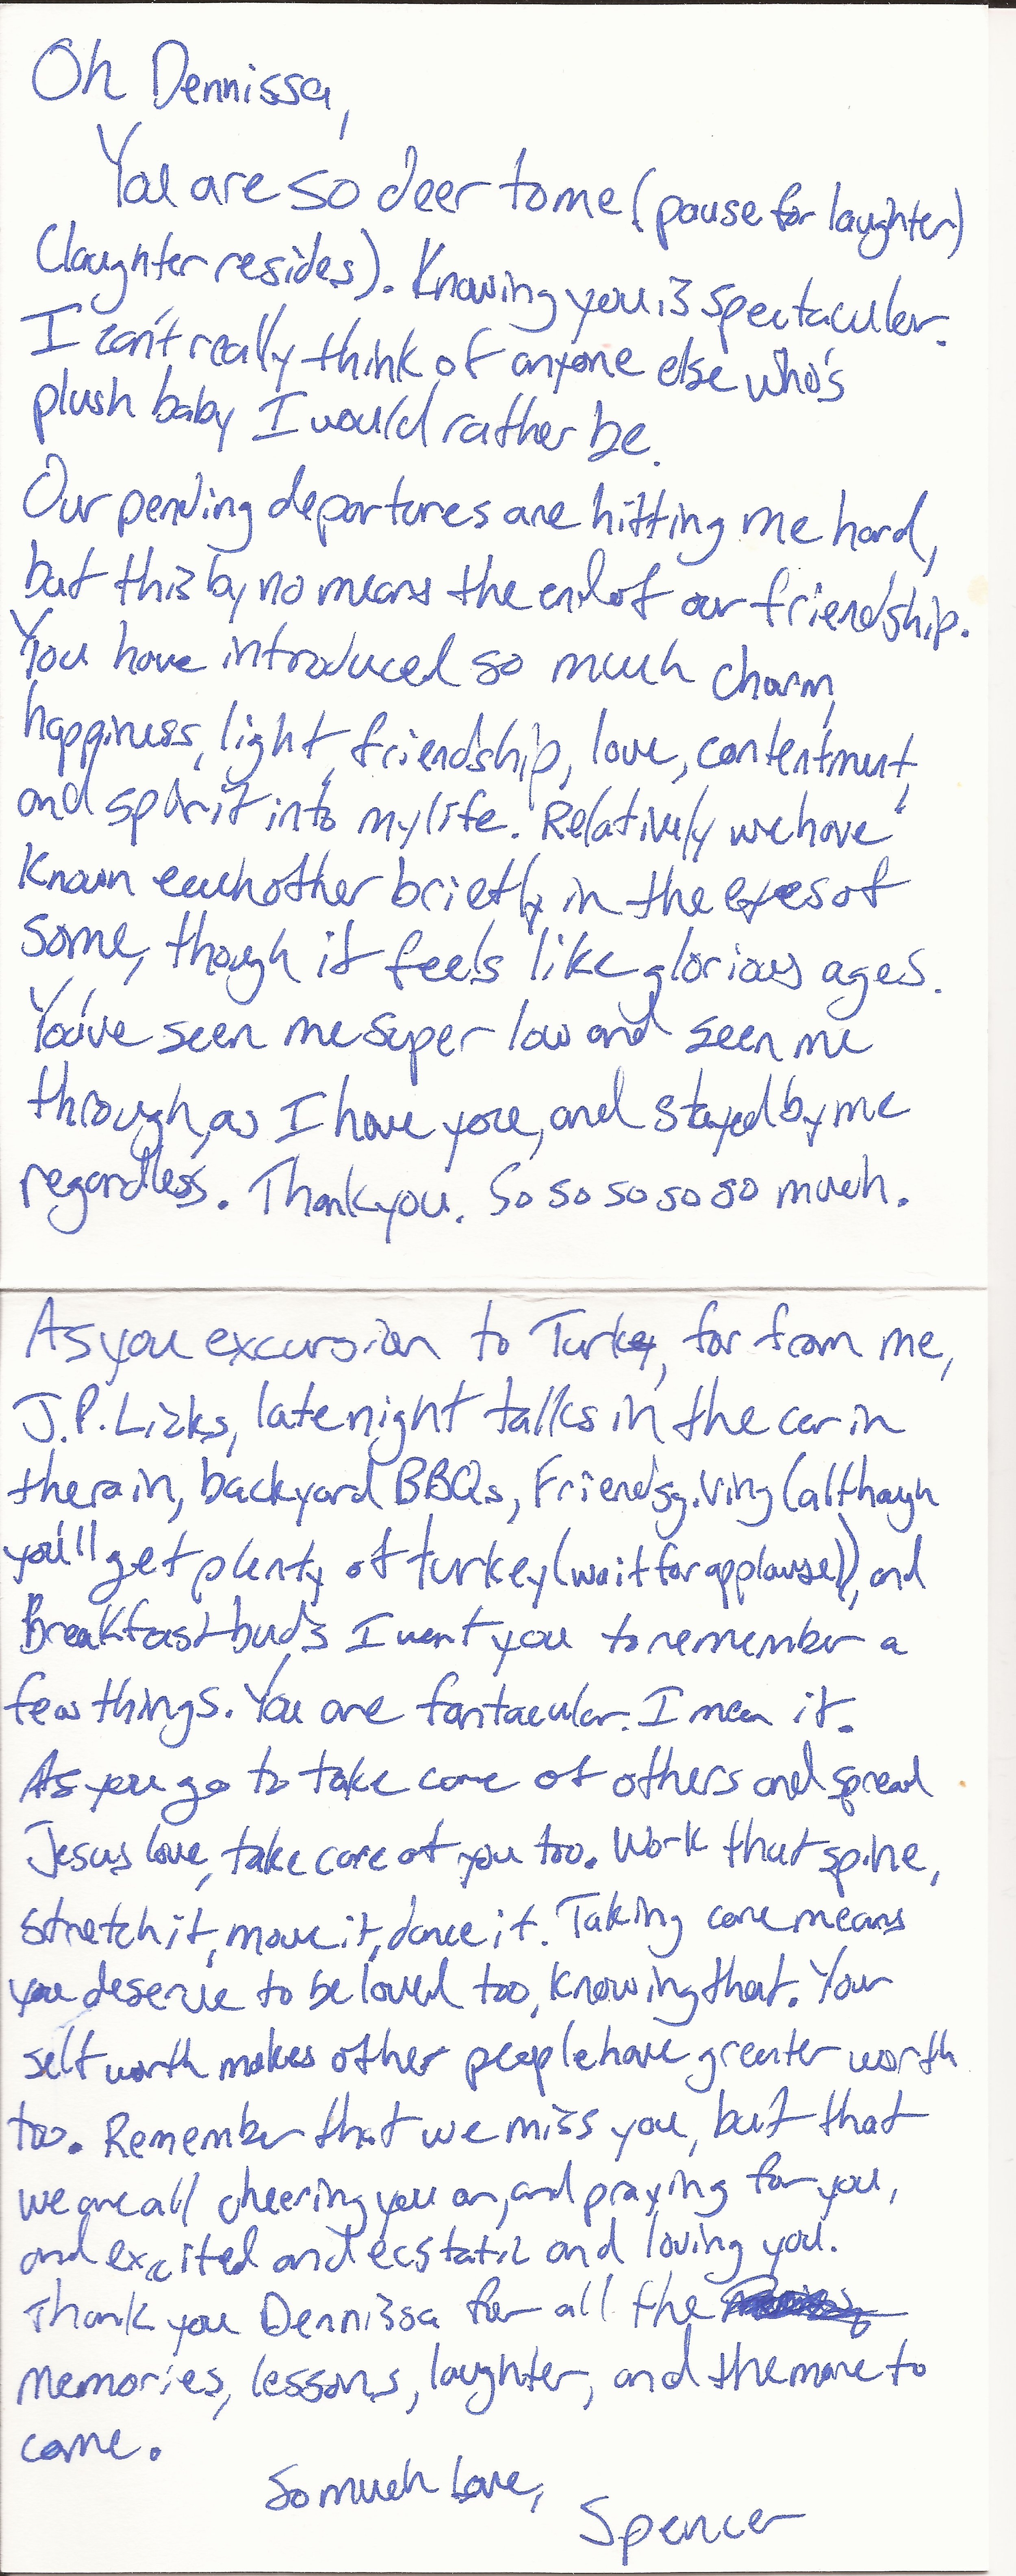 Oh Dennissa,
You are so deer to me (pause for laughter)
(laughter resides). Knowing you is spectacular.
I can't really think of anyone else who's
plush baby I would rather be.
Our pending departures are hitting me hard,
but this by no means the end of our friendship.
You have introduced so much charm,
happiness, light, friendship, love, contentment,
and spirit into my life. Relatively we have
known eachother briefly in the eyes of
some, though it feels like glorious ages.
You've seen me super low and seen me
through, as I have you, and stayed by me
regardless. Thank you. So so so so so much.
As you excursion to Turkey, far from me,
J.P. Licks, late night talks in the car in
the rain, backyard BBQs, Friendsgiving (although
you'll get plenty of turkey (wait for applause)), and
Breakfast buds I want you to remember a
few things. You are fantacular. I mean it.
As you go to take care of others and spread
Jesus love, take care of you too. Work that spine,
stretch it, move it, dance it. Taking care means
you deserve to be loved too, knowing that. Your
self worth makes other people have greater worth
too. Remember that we miss you, but that
we are all cheering you on, and praying for you,
and excited and ecstatic and loving you.
Thank you Dennissa for all the
memories, lessons, laughter, and the more to
come.
So much Love,
Spencer